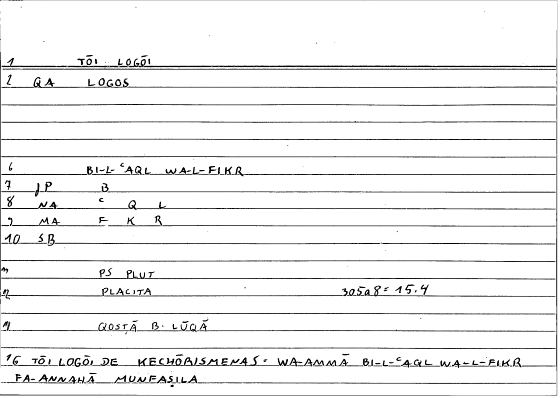 1 TŌI LOGŌI
2 QA LOGOS
6 BI-L-ᶜAQL WA-L-FIKR
7 JP B
8 NA ᶜ Q L
9 MA F K R
10 SB
11 PS PLUT
12 PLACITA 305a8 = 15.4
QOSṬĀ B. LŪQĀ
16 TŌI LOGŌI DE KECHŌRISMENAS = WA-AMMĀ BI-L-ᶜAQL WA-L-FIKR
FA-ANNAHĀ MUNFAṢILA